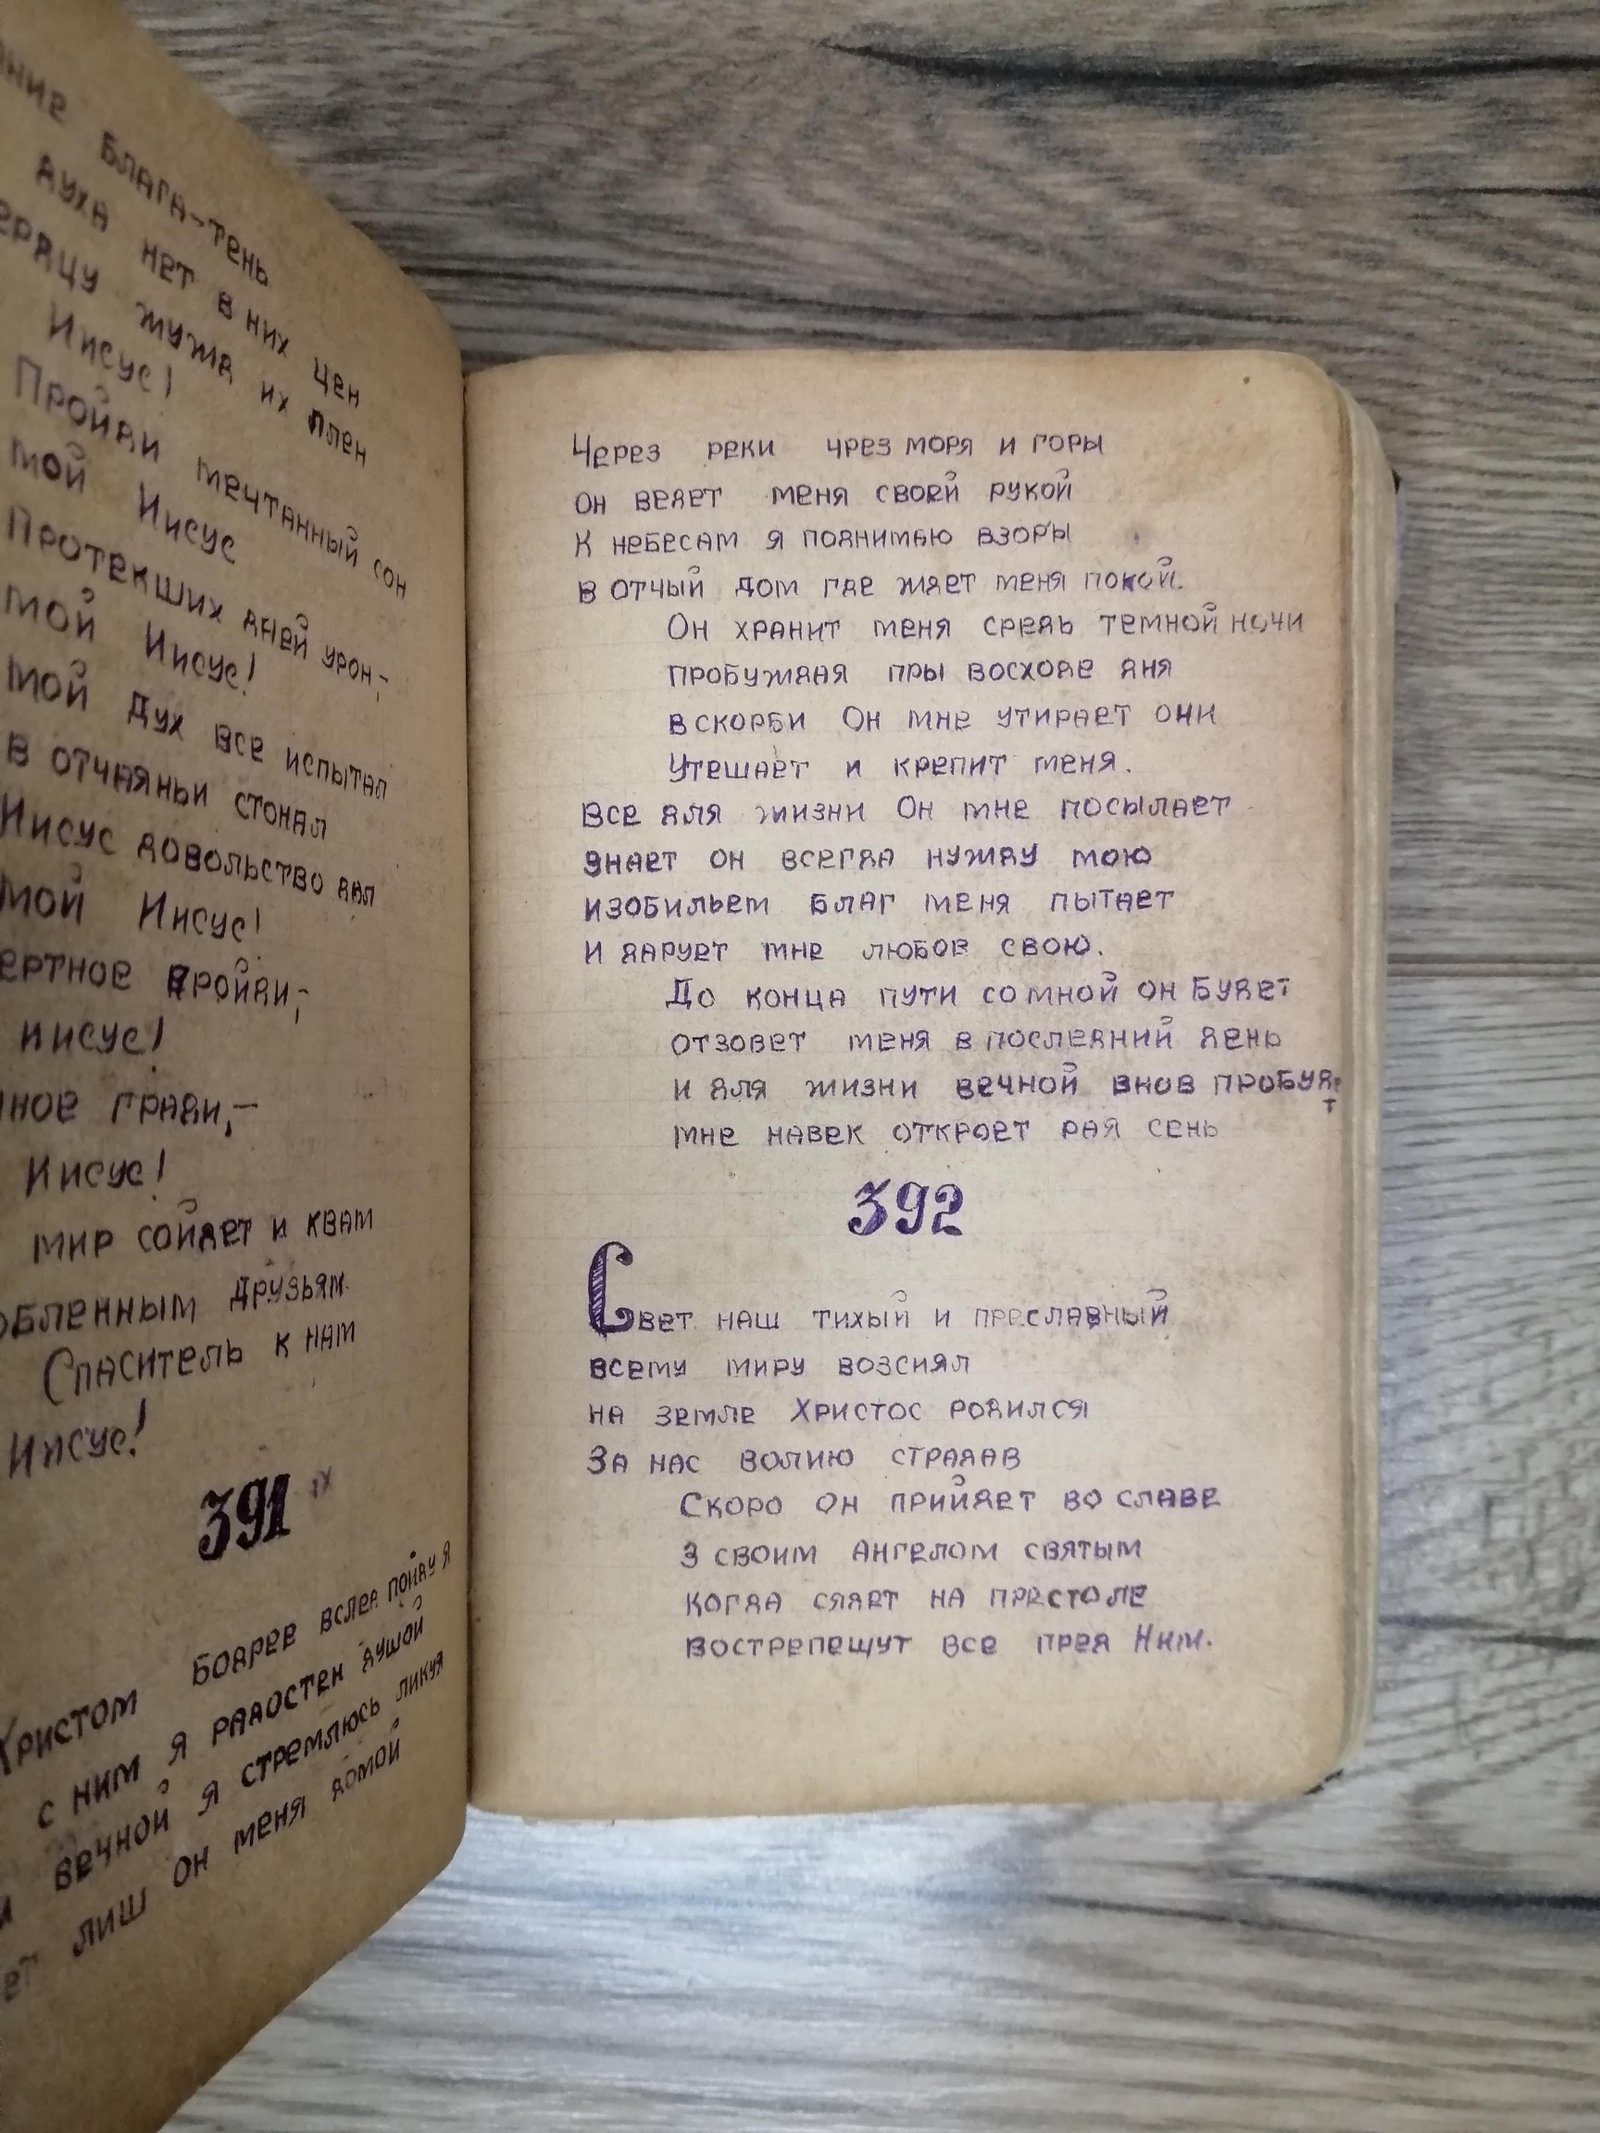 Блага-тень
духа нет в них цен
жужда их плен
Иисус!
Пройди мечтанный сон
мой Иисус
Протекших дней урон,-
мой Иисус!
мой Дух все испытал
в отчаяньи стонал
Иисус довольство дал
мой Иисус!
пройди,-
иисус!
гряди,-
Иисус!
мир сойдет и квам
Друзьям.
Спаситель к нам
Иисус!
391
Христом бодрее вслед пойду я
с ним я радостен душой
вечной я стремлюсь ликуя
лиш он меня домой
Через реки чрез моря и горы
Он ведет меня своей рукой
К небесам я поднимаю взоры
в отчый дом где ждет меня покой.
Он хранит меня средь темной ночи
пробуждая пры восходе дня
в скорби Он мне утирает очи
Утешает и крепит меня.
Все для жизни Он мне посылает
знает он всегда нужду мою
изобильем благ меня пытает
И дарует мне любов свою.
До конца пути со мной он будет
отзовет меня в последний день
и для жизни вечной внов пробудет
мне навек откроет рая сень
392
Свет наш тихый и преславный
всему миру возсиял
на земле Христос родился
За нас волию страдав
Скоро он прийдет во славе
З своим Ангелом святым
когда сядет на престоле
вострепещут все пред Ним.